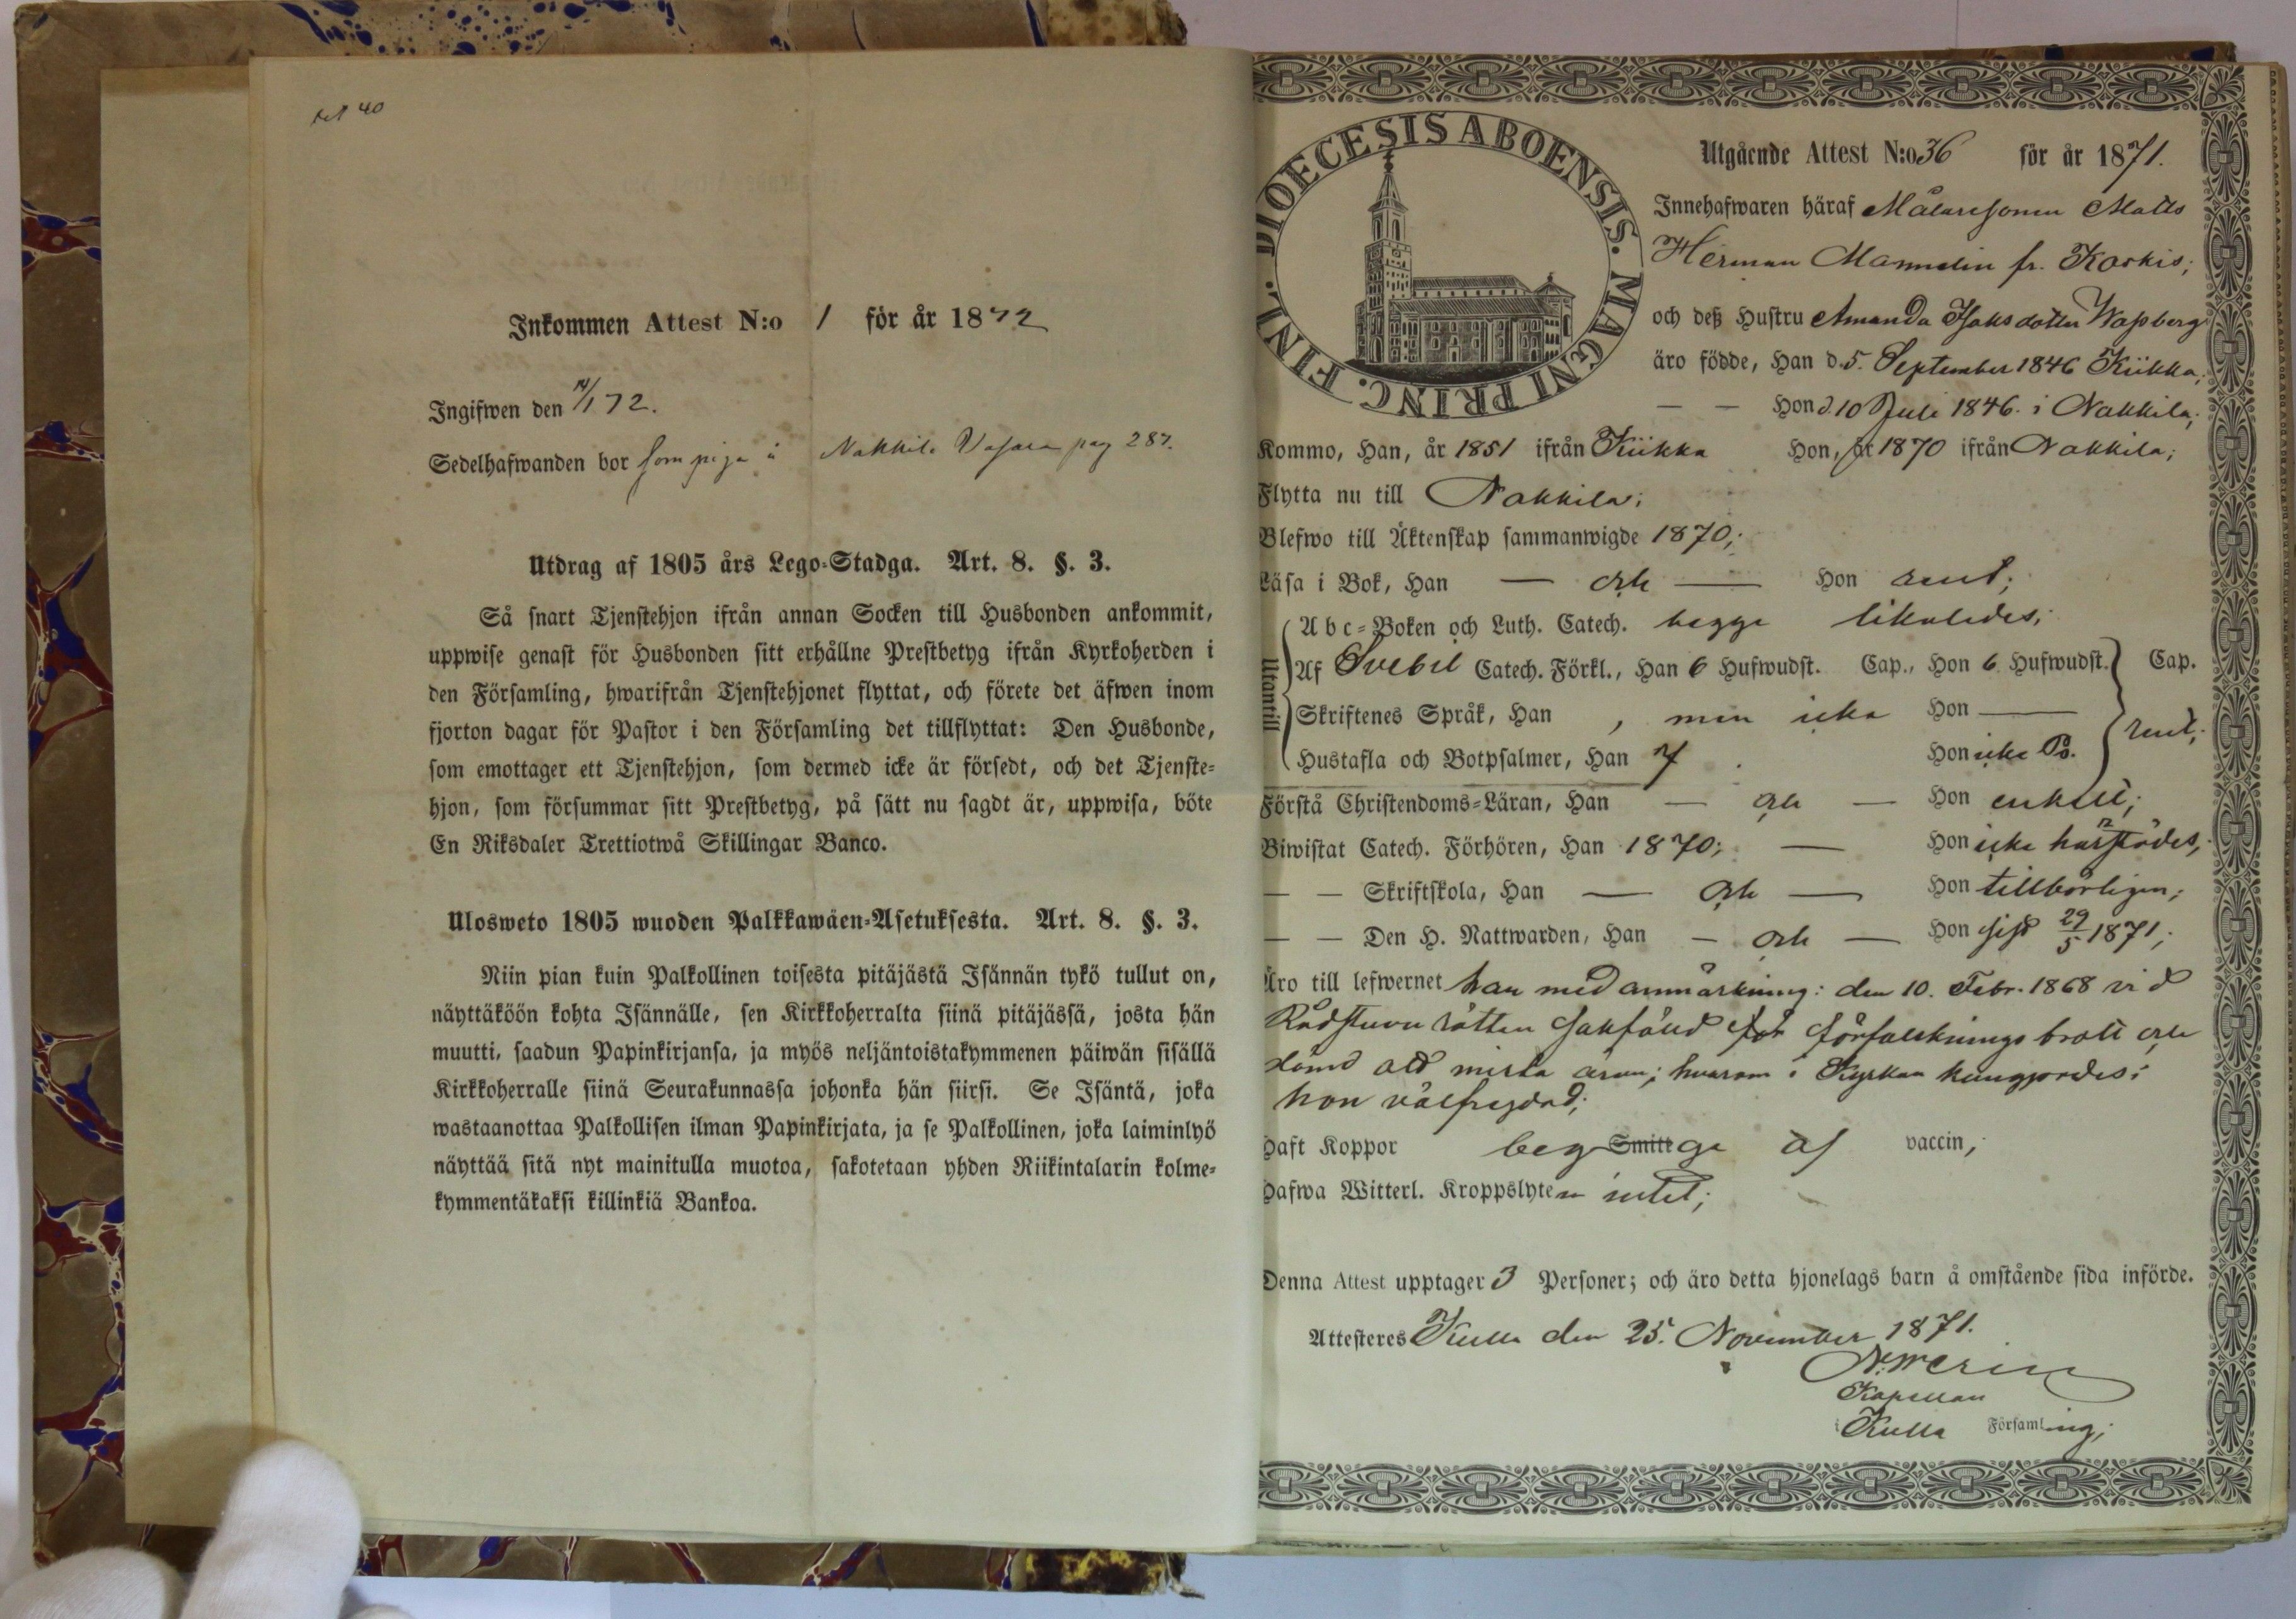 40
Inkommen Attest N:o 1 för år 1872
Ingifwen den 14/1 72.
Sedelhafwanden bor som piga å Nakkila Vasara pag 287.
Utdrag af 1805 års Lego-Stadga. Art. 8. §. 3.
Så snart Tjenstehjon ifrån annan Socken till Husbonden ankommit,
uppwise genast för Husbonden sitt erhållne Prestbetyg ifrån Kyrkoherden i
den Församling, hwarifrån Tjenstehjonet flyttat, och förete det äfwen inom
fjorton dagar för Pastor i den Församling det tillflyttat: Den Husbonde,
som emottager ett Tjenstehjon, som dermed icke är försedt, och det Tjenste-
hjon, som försummar sitt Prestbetyg, på sätt nu sagdt är, uppwisa, böte
En Riksdaler Trettiotwå Skillingar Banco.
Ulosweto 1805 wuoden Palkkawäen-Asetuksesta. Art. 8. §. 3.
Niin pian kuin Palkollinen toisesta pitäjästä Isännän tykö tullut on,
näyttäköön kohta Isännälle, sen Kirkkoherralta siinä pitäjässä, josta hän
muutti, saadun Papinkirjansa, ja myös neljäntoistakymmenen päiwän sisällä
Kirkkoherralle siinä Seurakunnassa johonka hän siirsi. Se Isäntä, joka
wastaanottaa Palkollisen ilman Papinkirjata, ja se Palkollinen, joka laiminlyö
näyttää sitä nyt mainitulla muotoa, sakotetaan yhden Riikintalarin kolme-
kymmentäkaksi killinkiä Bankoa.
DIOECESIS ABOENSIS. MAGNI PRINC. FINL.
Utgående Attest N:o 36 för år 1871.
Innehafwaren häraf Målaresonen Matts
Herman Mannelin fr. Kaskis;
och deß Hustru Amanda Isaksdotter Waßberg
äro födde, Han d. 5. September 1846 Kiikka,
— — Hon d. 10 Juli 1846. i Nakkila;
Kommo, Han, år 1851 ifrån Kiikka Hon, år 1870 ifrån Nakkila;
Flytta nu till Nakkila;
Blefwo till Äktenskap sammanwigde 1870;
Läsa i Bok, Han — och — Hon rent;
Utantill
Abc-Boken och Luth. Catech. begge likaledes;
Af Svebil Catech. Förkl., Han 6 Hufwudst. Cap., Hon 6 Hufwudst. Cap.
Skriftenes Språk, Han , men icke Hon —
rent;
Hustafla och Botpsalmer, Han 7 . Hon icke Ps.
Förstå Christendoms-Läran, Han — och — Hon enkelt;
Biwistat Catech. Förhören, Han 1870; — Hon icke härstädes,
— — Skriftskola, Han — och — Hon tillbörligen;
— — Den H. Nattwarden, Han — och — Hon sist 29/5 1871;
Äro till lefwernet han med anmärkning: den 10. Febr. 1868 vid
Rådstuvu rätten sakfälld för förfalsknings brott och
dömd att mista äran; hvarom i Kyrkan kungjordes;
hon välfrejdad;
Haft Koppor begge Smitt af vaccin,
Hafwa Witterl. Kroppslyten intet;
Denna Attest upptager 3 Personer; och äro detta hjonelags barn å omstående sida införde.
Attesteres Kulla den 25. November 1871.
Kapellan
i Kulla Församling;